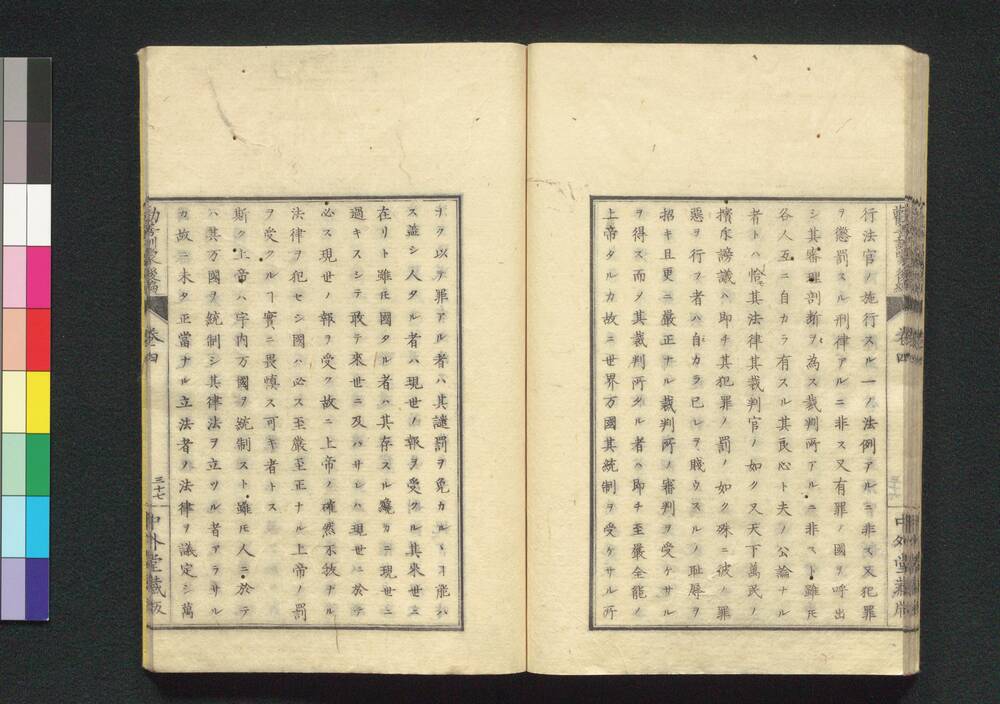 行法官ノ施行スル一ノ法例アルニ非ス又犯罪
ヲ懲罰スル刑律アルニ非ス又有罪ノ國ヲ呼出
シ其審理剖断ヲ為ス裁判所アルニ非スト雖𪜈
各人互ニ自カラ有スル其良心ト夫ノ公論ナル
者トハ恰其法律其裁判官ノ如ク又天下萬民ノ
擯斥謗議ハ即チ其犯罪ノ罰ノ如ク殊ニ彼ノ罪
惡ヲ行フ者ハ自カラ已レヲ賤ウスルノ耻辱ヲ
招キ且更ニ嚴正ナル裁判所ノ審判ヲ受ケサル
ヲ得ス而メ其裁判所タル者ハ即チ至嚴全能ノ
上帝タルカ故ニ世界万國其統制ヲ受ケサル所
ヲクタ以テ罪アル者ハ其譴罰ヲ免カルヽヿ能ハ
ス蓋シ人タル者ハ現世ノ報ヲ受ク其來世ニ
在リト雖𪜈國タル者ハ其存スル纔カニ現世ニ
過キスシテ敢テ來世ニ及ハサレハ現世ニ於テ
必ス現世ノ報ヲ受ク故ニ上帝ノ確然不敎ナル
法律ヲ犯セシ國ハ必ス至嚴至正ナル上帝ノ罰
ヲ受クルヿ實ニ畏慎ス可キ者トス
斯ク上帝ハ宇内万國ヲ統制スト雖𪜈人ニ於テ
ハ其万國ヲ統制シ其律法ヲ立ツル者アラサル
カ故ニ未タ正當ナル立法者ノ法律ヲ議定シ萬
卷四
三十七
中外堂藏版
卷四
中外堂藏版